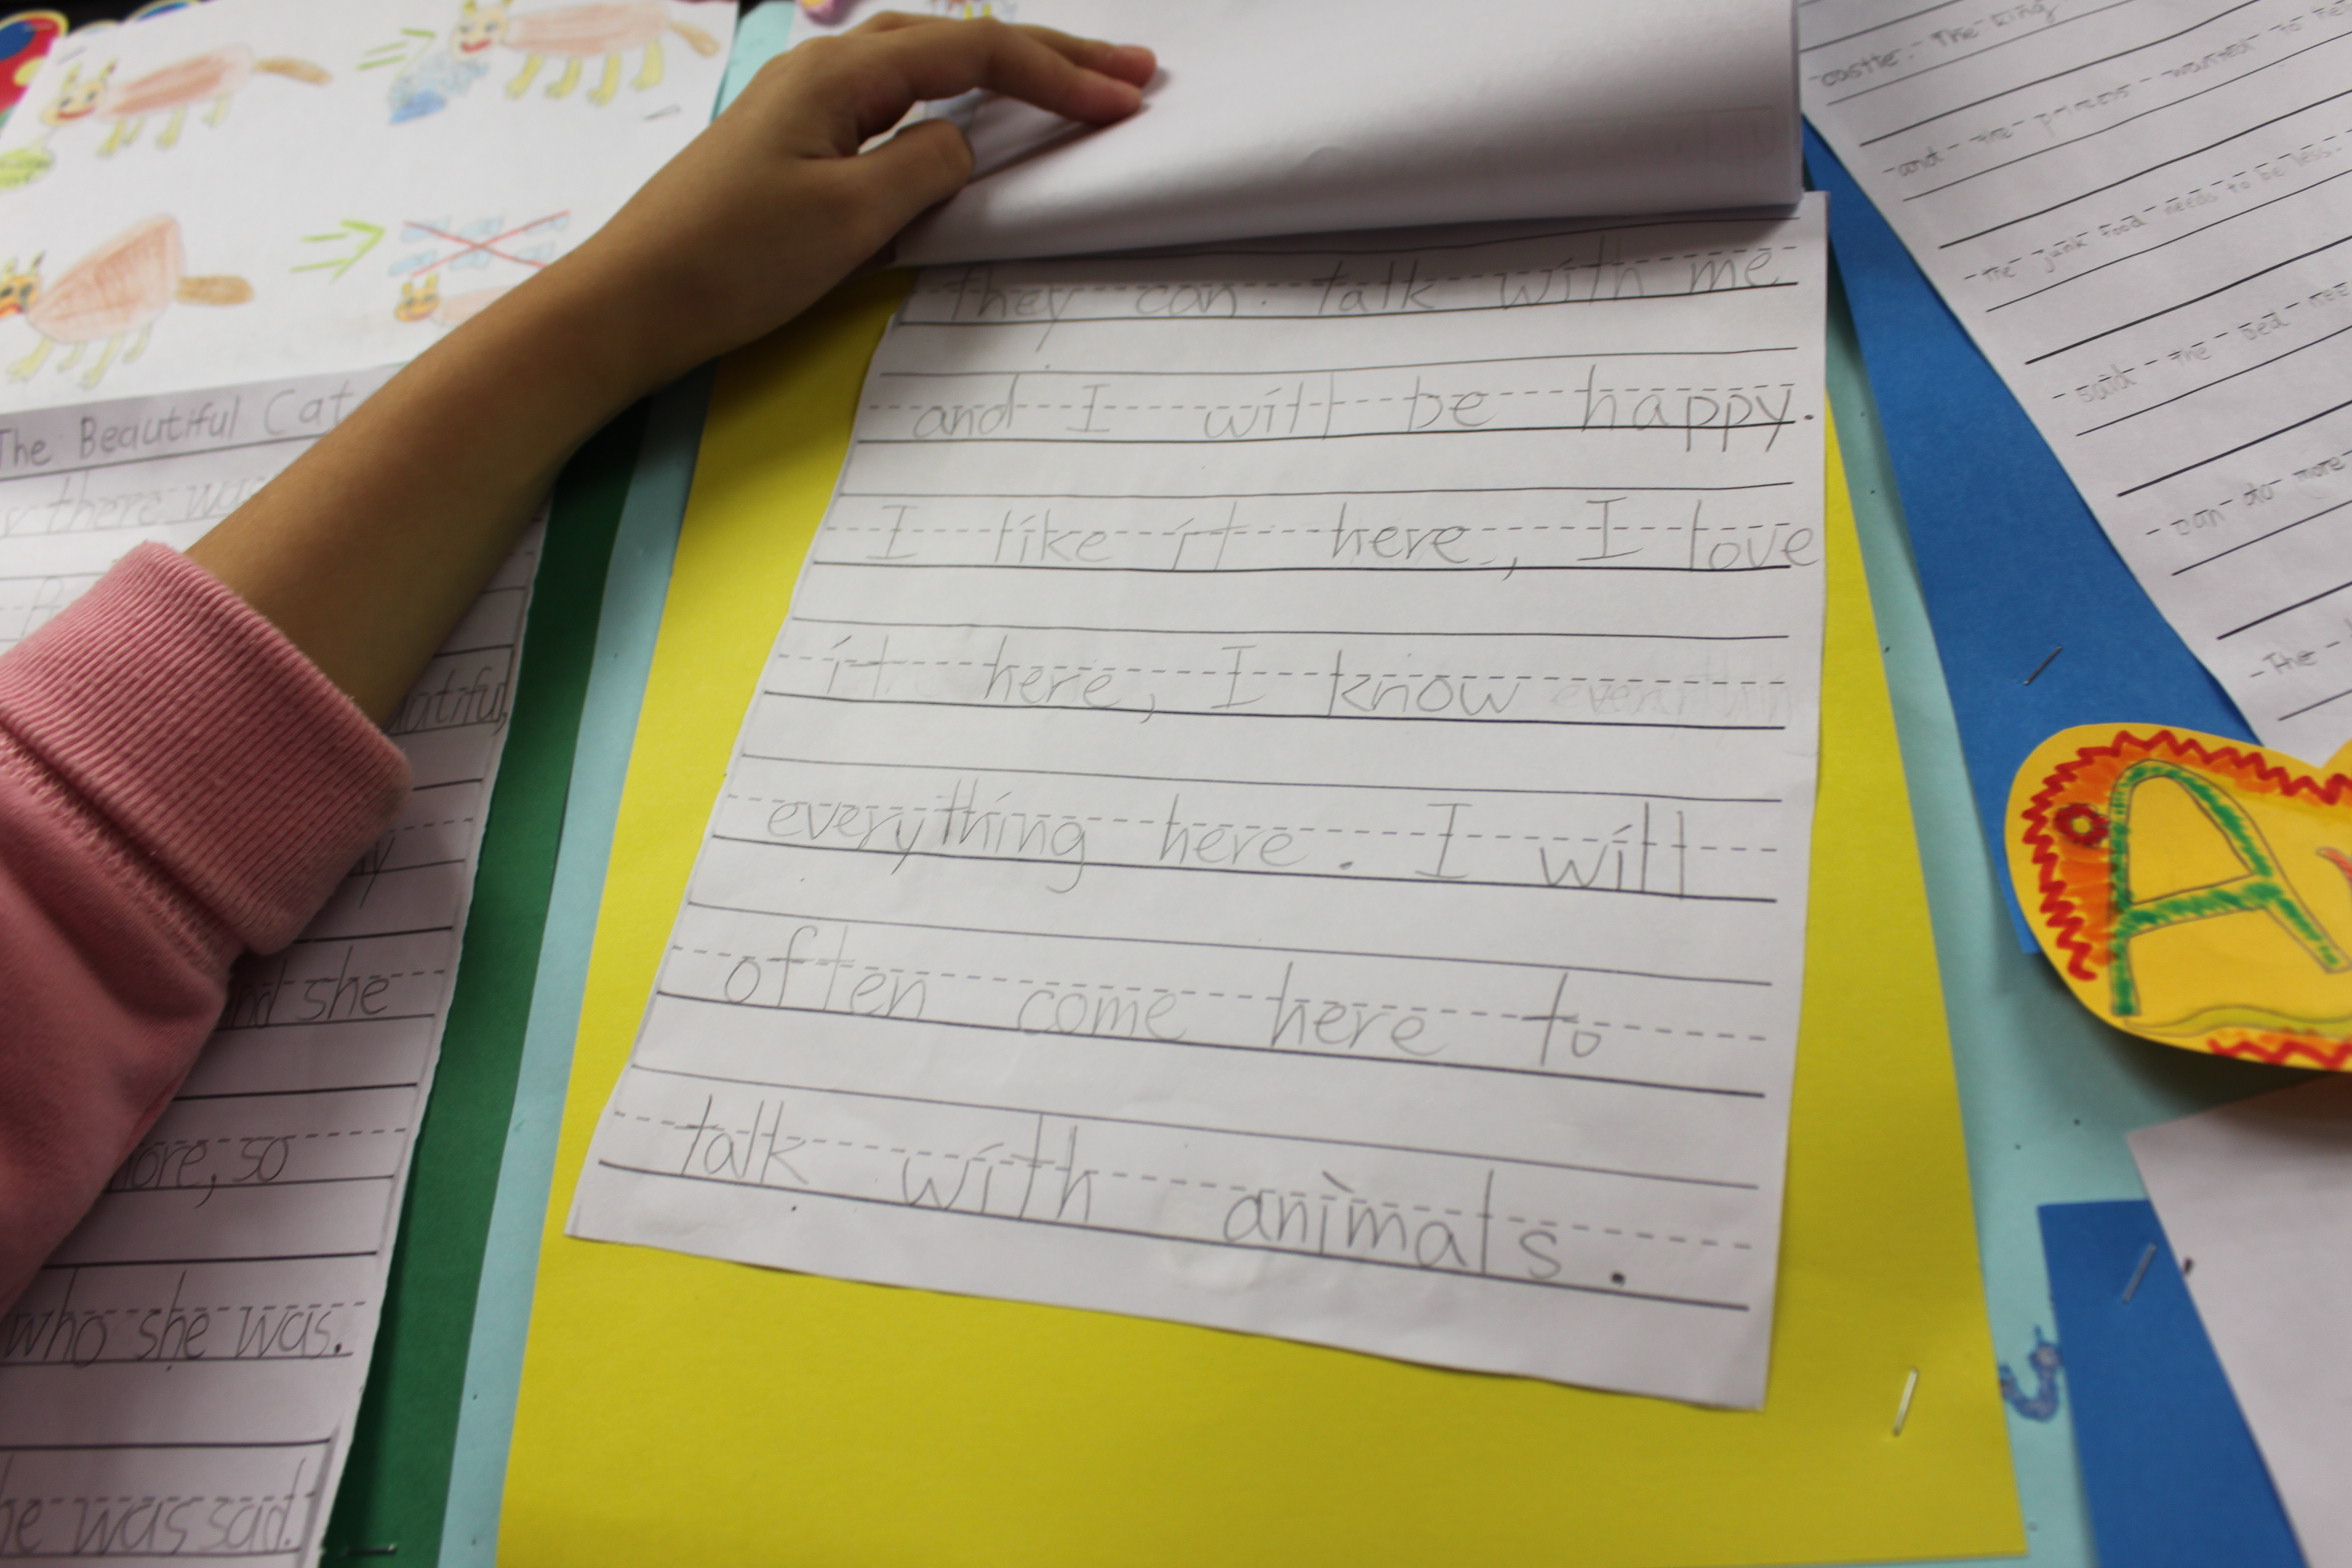 The Beautiful Cat
there was
and she
ore, so
who she was.
he was sad.
they can talk with me
and I will be happy.
I like it here, I love
it here, I know everything
everything here. I will
often come here to
talk with animals.
castle. The king
and the princess wanted to
the junk food needs to be less.
said the bed
can do more
The
A